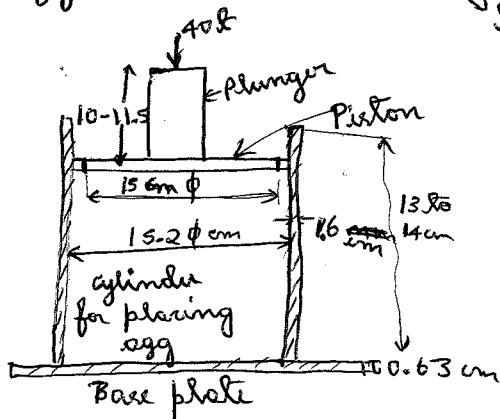 40t
plunger
10-11.5
Piston
15 cm ϕ
15.2 ϕ cm
1.6 cm
13 to
14 cm
cylinder
for placing
agg
0.63 cm
Base plate